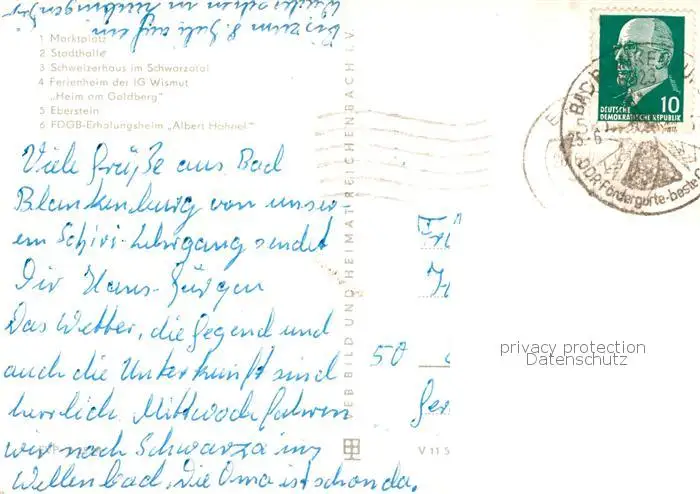 bis zum 8. Juli auf ein
Wiedersehen in
1 Marktplatz
2 Stadthalle
3 Schweizerhaus im Schwarzatal
4 Ferienheim der IG Wismut
„Heim am Goldberg"
5 Eberstein
6 FDGB-Erholungsheim „Albert Hähnel"
Viele Grüße aus Bad
Blankenburg von unser-
em Schiri-Lehrgang sendet
Dir Hans-Jürgen
Das Wetter, die Gegend und
auch die Unterkunft sind
herrlich. Mittwoch fahren
wir nach Schwarza ins
Wellenbad. Die Oma ist schon da.
VEB BILD UND HEIMAT REICHENBACH I. V.
V 11 5
50
DEUTSCHE
DEMOKRATISCHE REPUBLIK
10
6823
DDR-Fördergurte-beste
privacy protection
Datenschutz